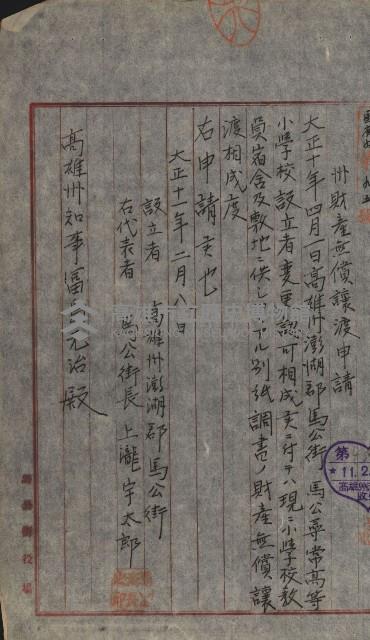 州財産無償讓渡申請
大正十年四月一日高雄州澎湖郡馬公街 馬公尋常高等
小學校設立者變更認可相成候ニ付テハ現ニ小學校教
員宿舍及敷地ニ供シアル別紙調書ノ財産無償讓
渡相成度
右申請候也
大正十一年二月八日
設立者 高雄州澎湖郡馬公街
右代表者 馬公街長 上瀧宇太郎
高雄州知事富島元治殿